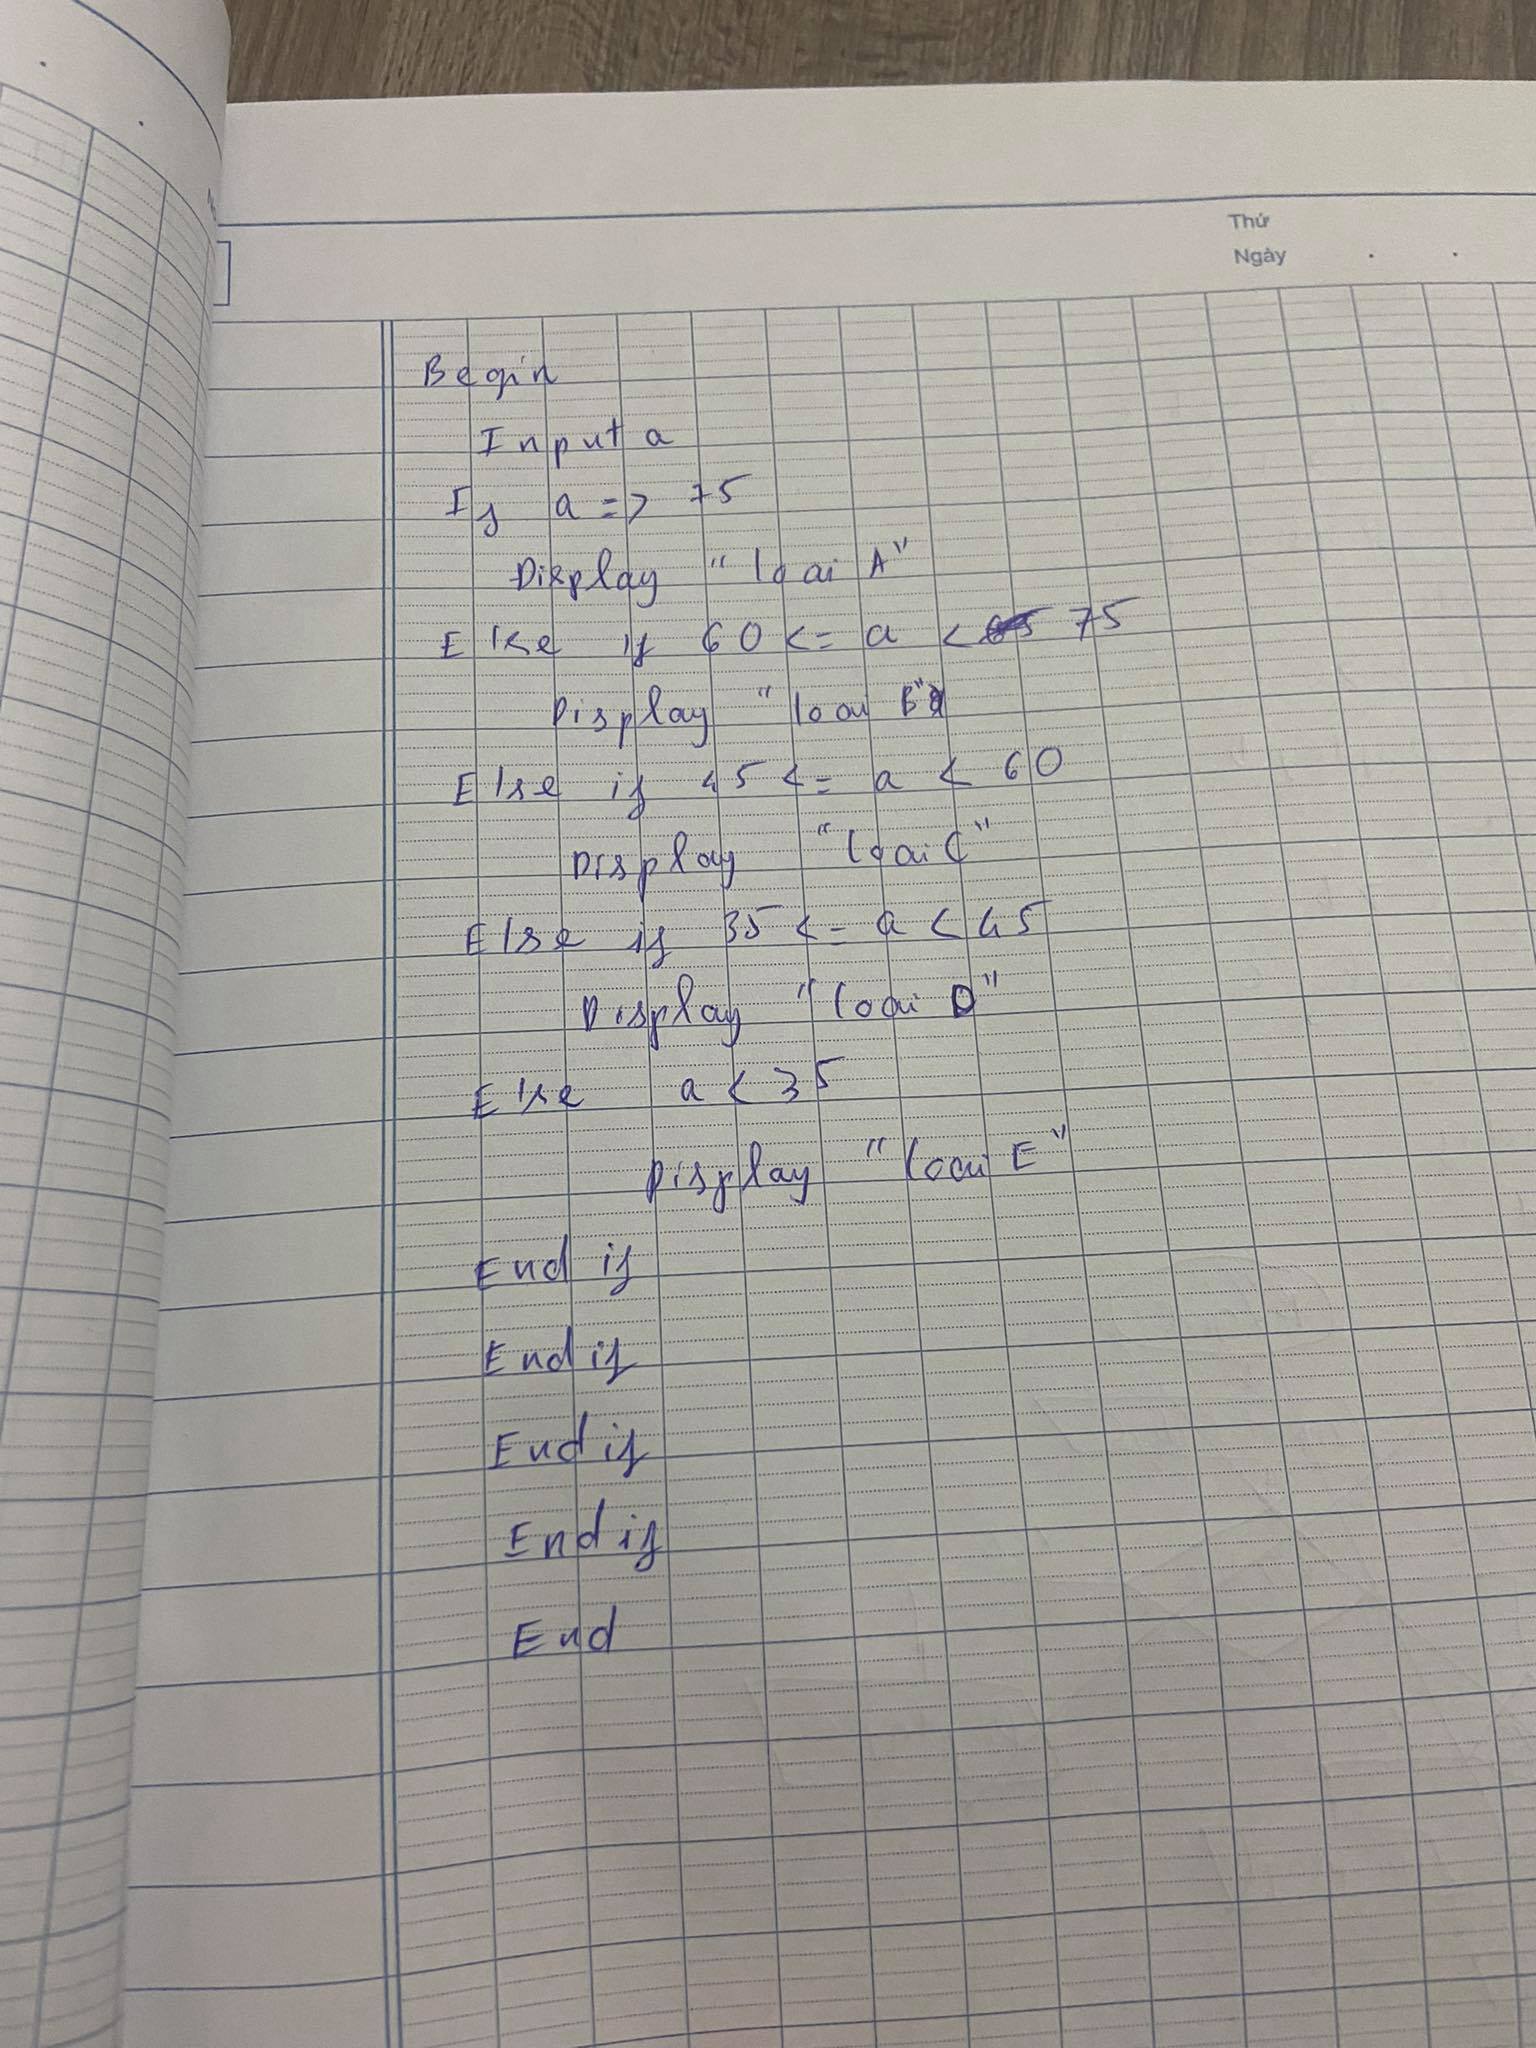 Thứ
Ngày
Begin
Input a
If a => 75
Display "loai A"
Else if 60 <= a < 75
Display "loai B"
Else if 45 <= a < 60
Display "loai C"
Else if 35 <= a < 45
Display "loai D"
Else a < 35
Display "loai E"
End if
End if
End if
End if
End